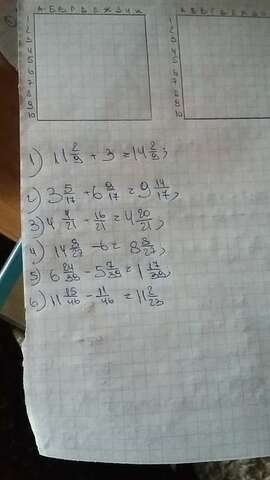 А Б В Г Д Е Ж З И К
1
2
3
4
5
6
7
8
9
10
1
2
3
4
5
6
7
8
9
10
1) 11 2/9 + 3 = 14 2/9;
2) 3 5/17 + 6 9/17 = 9 14/17;
3) 4 4/21 + 16/21 = 4 20/21;
4) 14 8/27 - 6 = 8 8/27;
5) 6 24/39 - 5 7/39 = 1 17/39;
6) 11 15/46 - 11/46 = 11 2/23